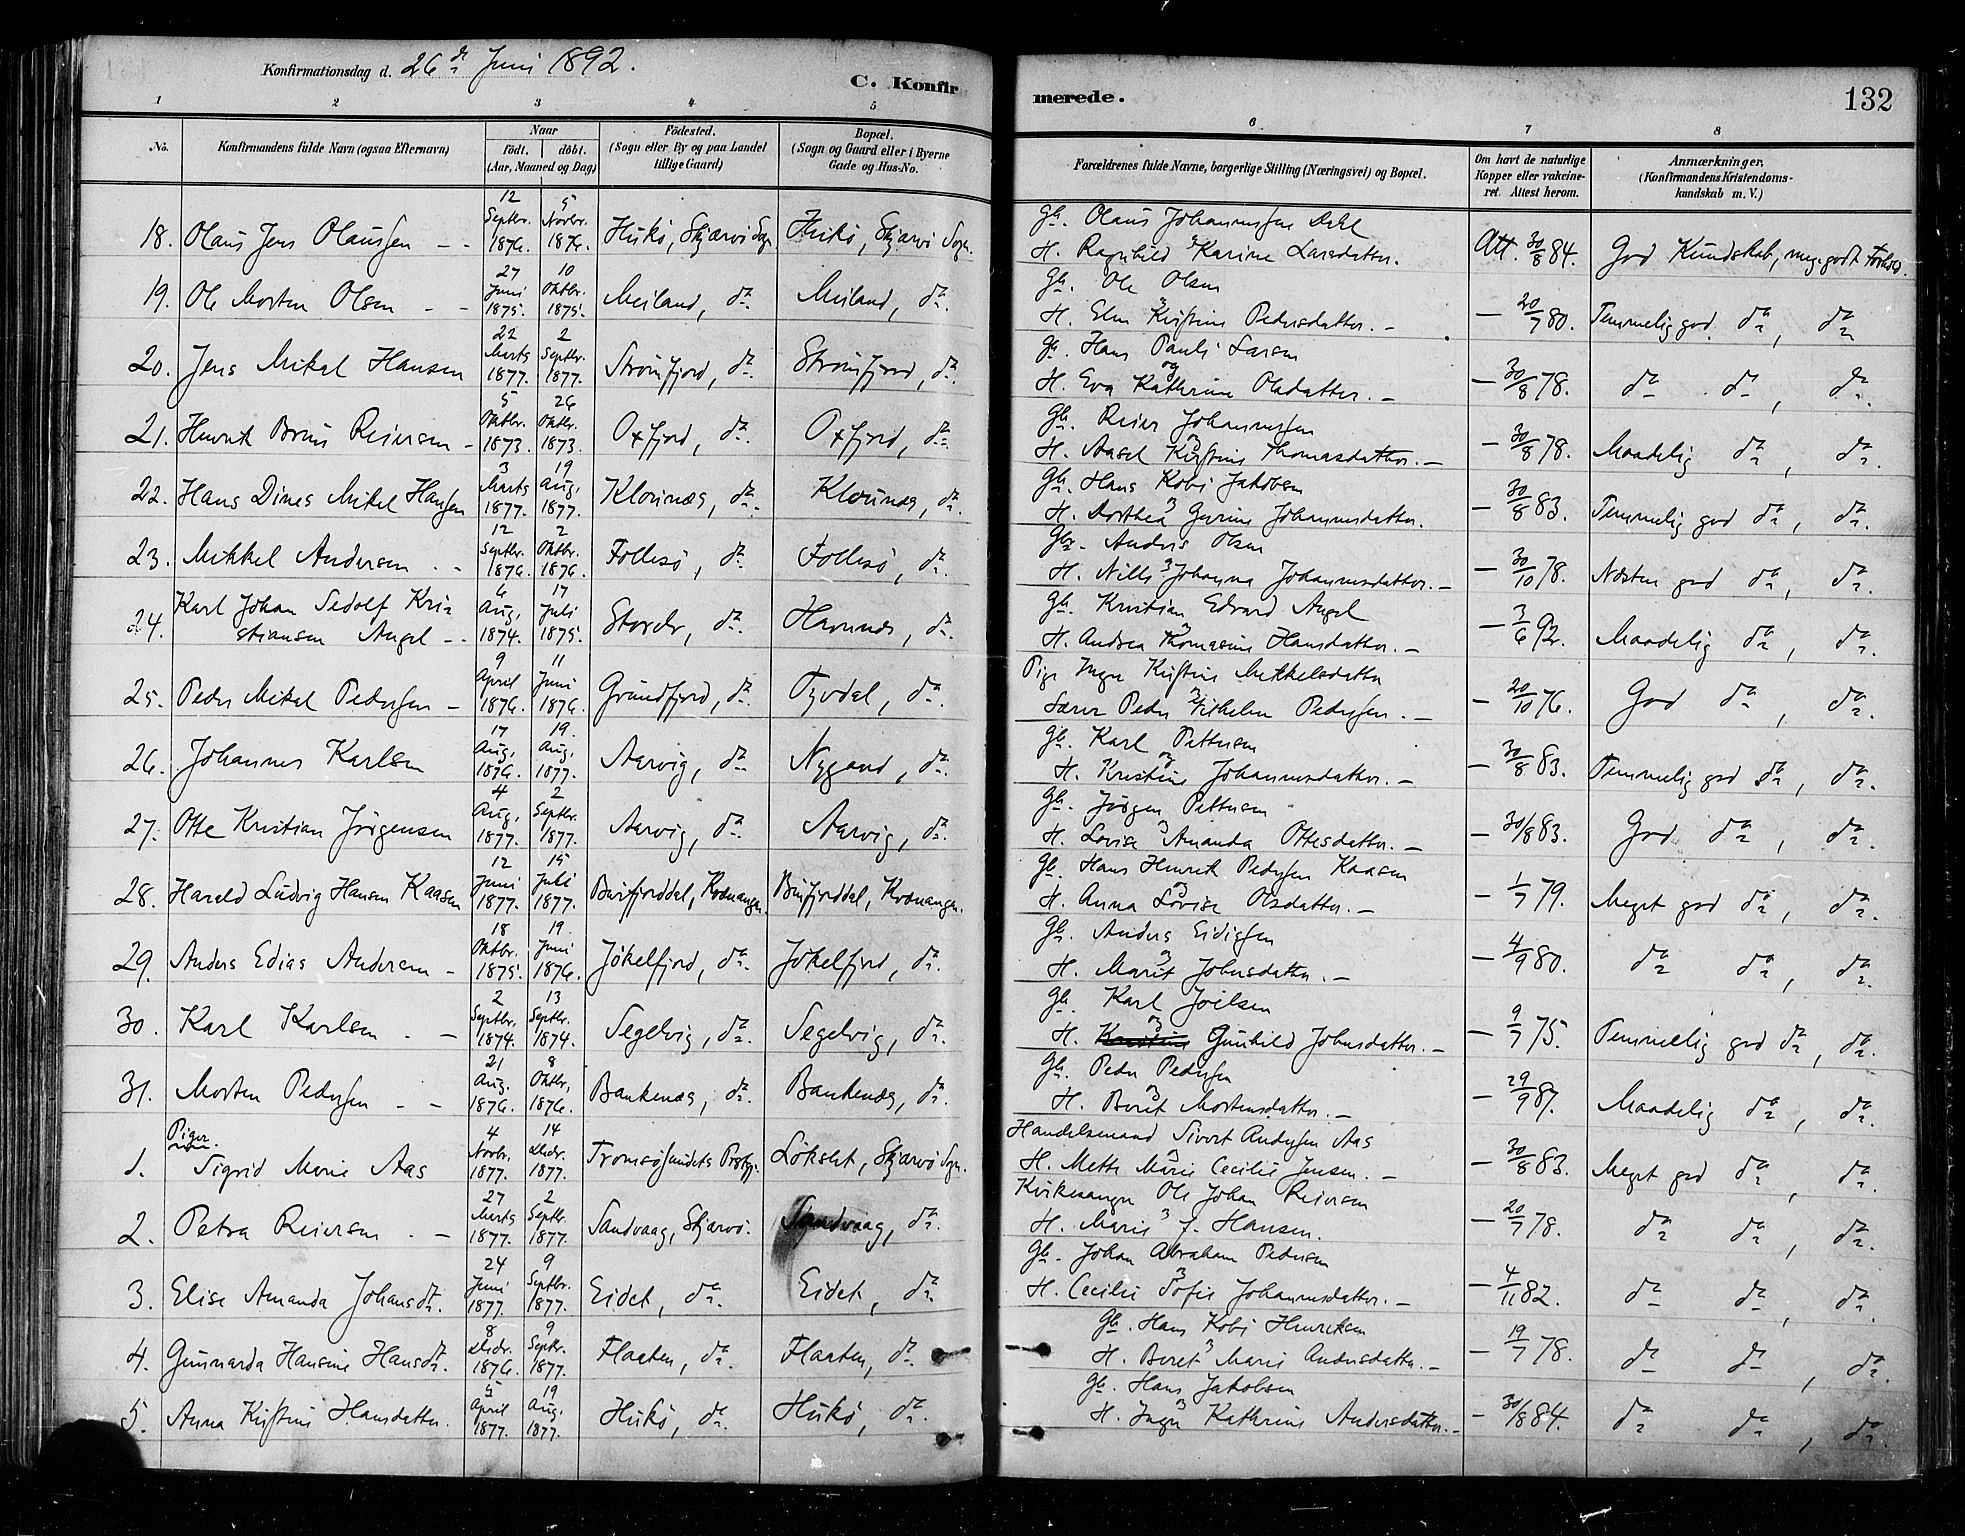 Konfirmationsdag d. 26de Juni 1892.
C. Konfirmerede.
132
1 2 3 4 5 6 7 8
No.
Konfirmandens fulde Navn (ogsaa Efternavn)
Naar födt. döbt. (Aar, Maaned og Dag)
Födested. (Sogn eller By og paa Landet tillige Gaard)
Bopæl. (Sogn og Gaard eller i Byerne Gade og Hus-No.
Forældrenes fulde Navne, borgerlige Stilling (Næringsvei) og Bopæl.
Om havt de naturlige Kopper eller vakcineret. Attest herom.
Anmærkninger, (Konfirmandens Kristendomskundskab m. V.)
18. Olaus Jens Olaussen -- 12 Septbr. 1876. 5 Novbr. 1876. Hukö, Skjærvö Sogn. Hukö, Skjærvö Sogn. Gb. Olaus Johannessen Dahl og H. Ragnhild Karine Larsdatter. Att. 30/8 84. God Kundskab, meg. godt Forhold.
19. Ole Morten Olsen -- 27 Juni 1875. 10 Oktbr. 1875. Meiland, do. Meiland, do. Gb. Ole Olsen og H. Elen Kristine Pedersdatter. - 20/7 80. Temmelig god do, do
20. Jens Mikal Hansen 22 Marts 1877. 2 Septbr. 1877. Strömfjord, do. Strömfjord, do. Gb. Hans Pauli Larsen og H. Eva Kathrine Olsdatter. - 30/8 78. do do, do.
21. Henrik Reiersen - 5 Oktbr. 1873. 26 Oktbr. 1873. Oxfjord, do. Oxfjord, do. Gb. Reier Johannessen og H. Aasel Kirstine Thomasdatter. - 30/8 78. Maadelig do, do.
22. Hans Dines Mikal Hansen 3 Marts 1877. 19 Aug. 1877. Klounæs, do. Klounæs, do. Gb. Hans Kobi Jakobsen og H. Dorthea Gurine Johannesdatter. - 30/8 83. Temmelig god do, do.
23. Mikkel Andersen -- 12 Septbr. 1876. 2 Oktbr. 1876. Follesö, do. Follesö, do. Gb. Anders Olsen og H. Nille Johanna Johannesdatter. - 30/10 78. Næsten god do, do.
24. Karl Johan Sedolf Kristiansen Angel -- 6 Aug. 1874. 17 Juli 1875. Storelv, do. Havnnæs, do. Gb. Kristian Edvard Angel og H. Andrea Thomasine Hansdatter. - 3/6 92. Maadelig do, do.
25. Peder Mikal Pedersen - 9 April 1876. 11 Juni 1876. Grundfjord, do. Tyvdal, do. Pige Inger Kirstine Mikkelsdatter og Lærer Peder Vilhelm Pedersen. - 20/10 76. God do, do.
26. Johannes Karlsen 17 Aug. 1876. 19. Aug. 1877. Aarvig, do. Nygaard, do. Gb. Karl Pettersen og H. Kristine Johannesdatter. - 30/8 83. Temmelig god do, do.
27. Otte Kristian Jörgensen 4 Aug. 1877. 2 Septbr. 1877. Aarvig, do. Aarvig, do. Gb. Jörgen Pettersen og H. Lovise Amanda Ottesdatter. - 30/8 83. God do, do.
28. Harald Ludvig Hansen Kaasen 12 Juni 1877. 15 Juli 1877. Burfjorddal, Kvænangen. Burfjorddal, Kvænangen. Gb. Hans Henrik Pedersen Kaasen og H. Anna Lovise Olsdatter. - 1/7 79. Meget god do, do.
29. Anders Edias Andersen - 18 Oktbr. 1875. 19. Juni 1876. Jökelfjord, do. Jökelfjord, do. Gb. Anders Eidissen og H. Marit Johnsdatter. - 4/9 80. do do, do.
30. Karl Karlsen -- 2 Septbr. 1874. 13 Septbr. 1874. Segelvig, do. Segelvig, do. Gb. Karl Joelsen og H. Gunhild Johnsdatter. - 9/7 75. Temmelig god do, do.
31. Morten Pedersen -- 21 Aug. 1876. 8 Oktbr. 1876. Bankenæs, do. Bankenæs, do. Gb. Peder Pedersen og H. Beret Mortensdatter. - 29/9 87. Maadelig do, do.
Piger.
1. Sigrid Marie Aas 4 Novbr. 1877. 14 Decbr. 1877. Tromsösundets Præstgj. Lökslet, Skjærvö Sogn. Handelsmand Sivert Andersen Aas og H. Mette Marie Cecilie Jensen. - 30/8 83. Meget god do, do.
2. Petra Reiersen -- 27 Marts 1877. 2 Septbr. 1877. Sandvaag, Skjærvö. Sandvaag, do. Kirkesanger Ole Johan Reiersen og H. Marie f. Hansen. - 20/7 78. do do, do.
3. Elise Amanda Johansdt. 24 Juni 1877. 9 Septbr. 1877. Eidet, do. Eidet, do. Gb. Johan Abraham Pedersen og H. Cecilie Sofie Johannesdatter. - 4/11 82. do do, do.
4. Gunnarda Hansine Hansdt. 8 Decbr. 1876. 9 Septbr. 1877. Flaaten, do. Flaaten, do. Gb. Hans Kobi Henriksen og H. Beret Marie Andersdatter. - 19/7 78. do do, do.
5. Anna Kirstine Hansdatter. 5 April 1877. 19 Aug. 1877. Hukö, do. Hukö, do. Gb. Hans Jakobsen og H. Inger Kathrine Andersdatter. - 30/8 84. do do, do.